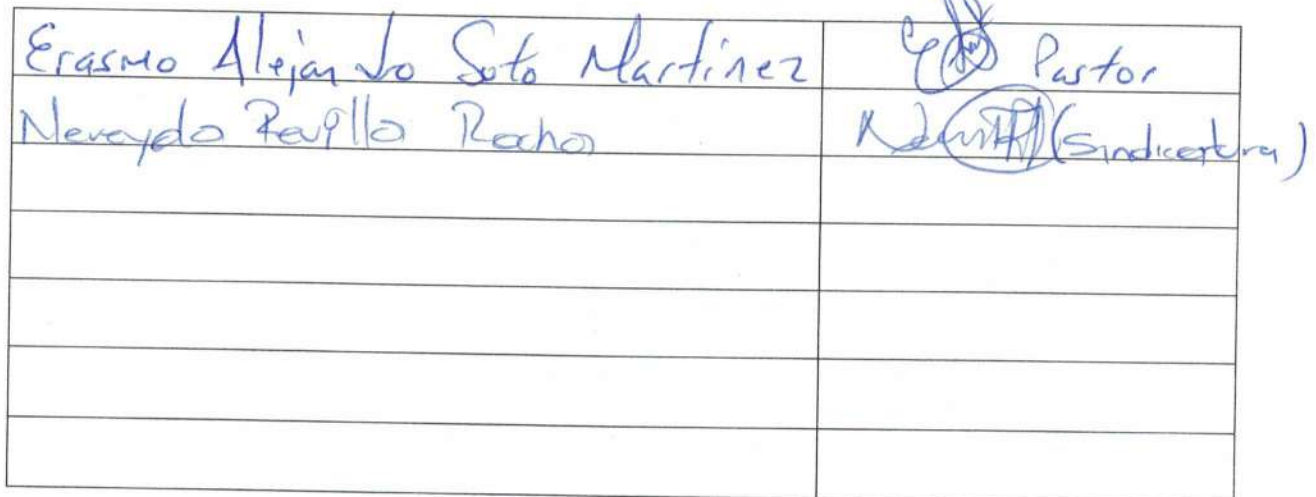 Erasmo Alejandro Soto Martínez Pastor
Nereyda Revilla Rocha (Sindicatura)